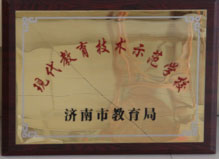 现代教育技术示范学校
济南市教育局